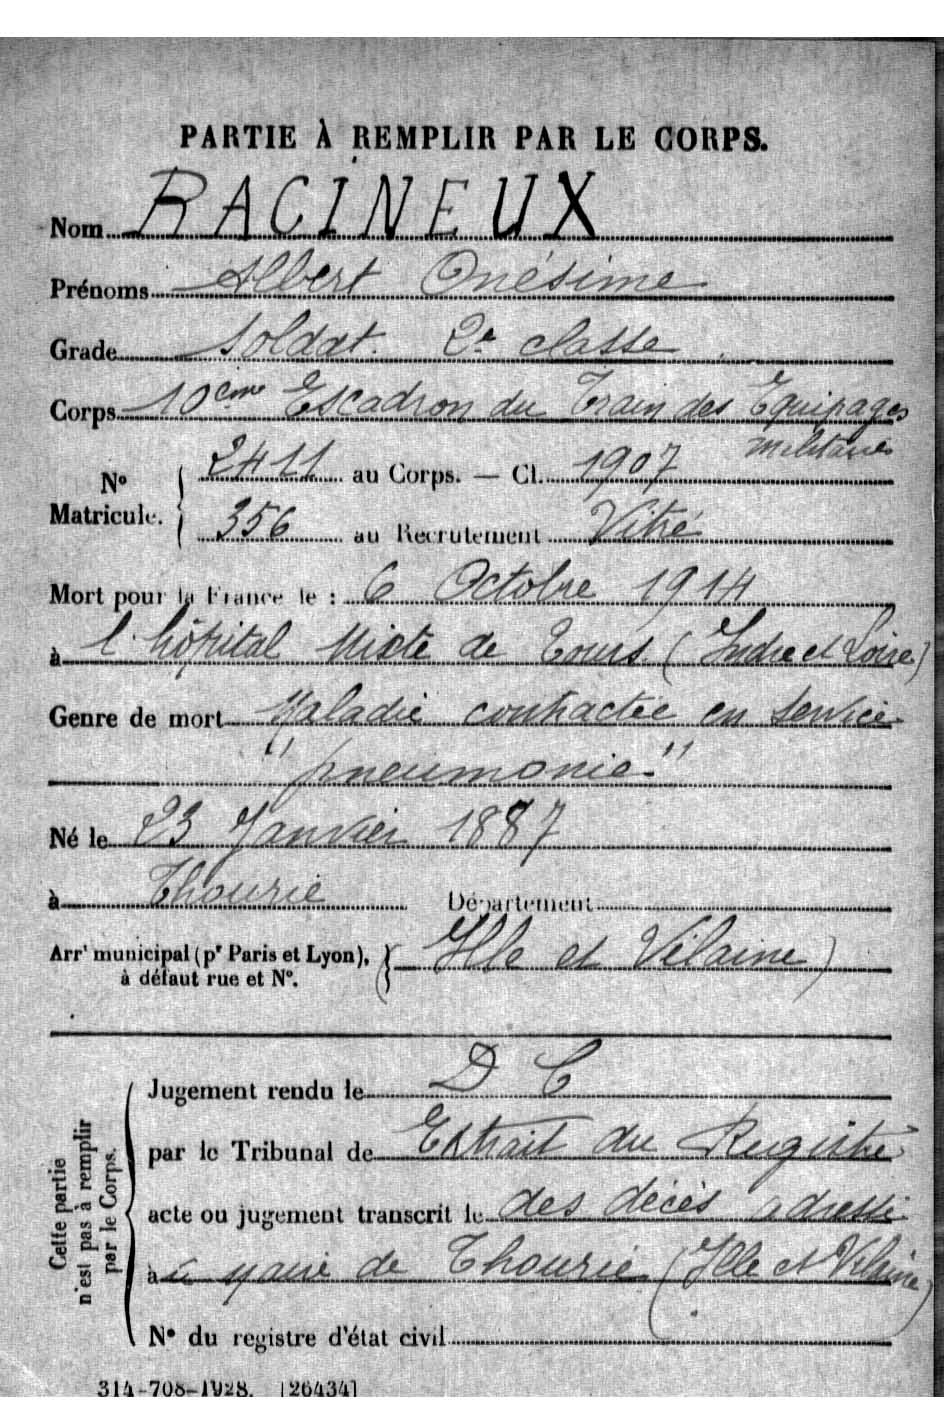 PARTIE À REMPLIR PAR LE CORPS.
Nom RACINEUX
Prénoms Albert Onésime
Grade Soldat. 2e classe
Corps 10eme Escadron du Train des Equipages
militaires
No Matricule. 2411 au Corps. — Cl. 1907
356 au Recrutement Vitré
Mort pour la France le : 6 Octobre 1914
à l'hôpital Mixte de Tours (Indre et Loire)
Genre de mort Maladie contractée en service
"pneumonie"
Né le 23 Janvier 1887
à Thourie Département
Arrt municipal (pr Paris et Lyon), à défaut rue et No. Ille et Vilaine)
Cette partie n'est pas à remplir par le Corps.
Jugement rendu le D C
par le Tribunal de Extrait du Registre
acte ou jugement transcrit le des décès adressé
à la mairie de Thourie (Ille et Vilaine)
No du registre d'état civil
314-708-1928. [26434]